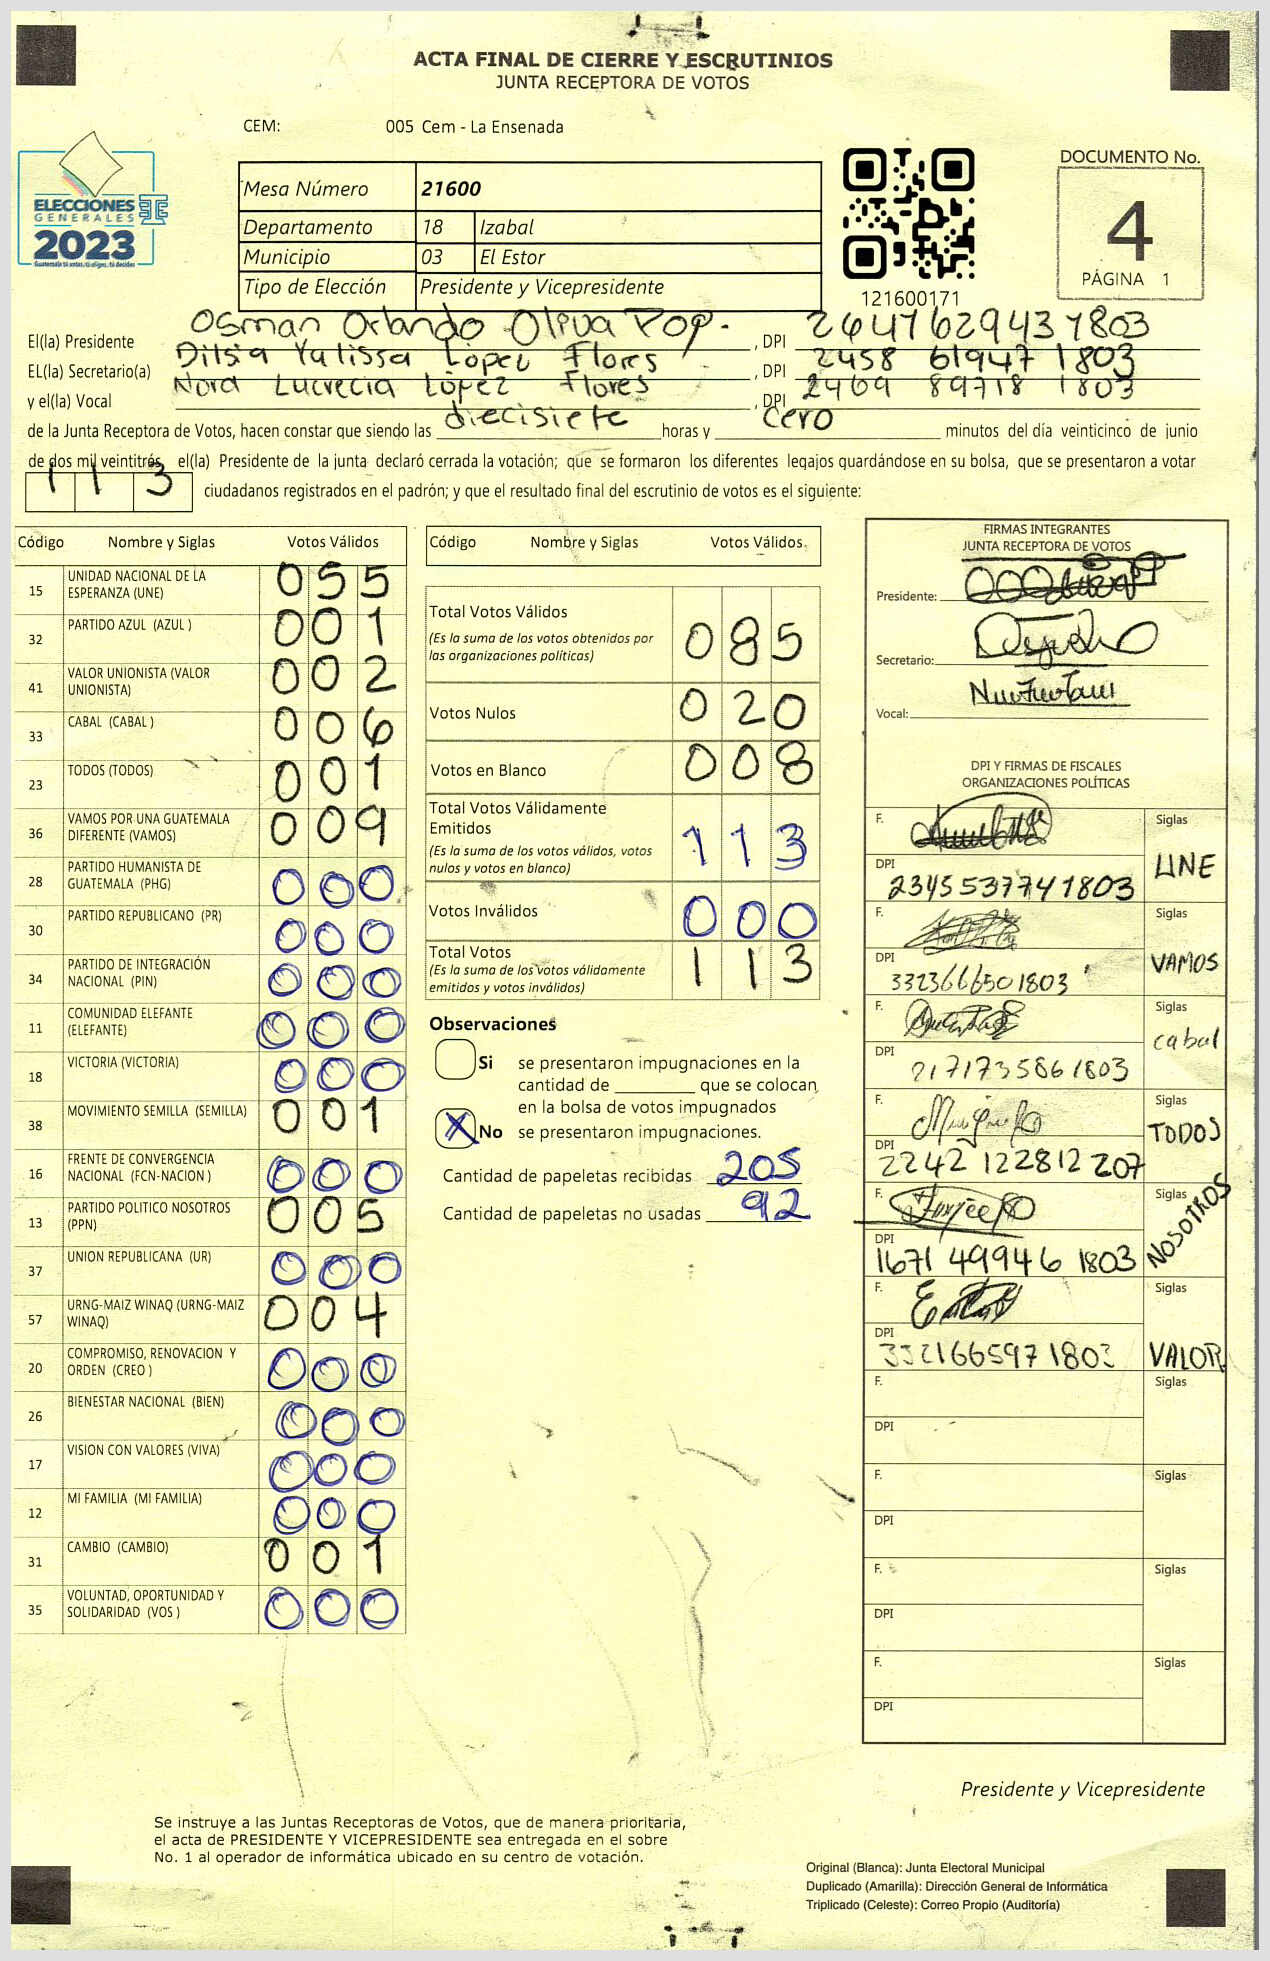 ACTA FINAL DE CIERRE Y ESCRUTINIOS
JUNTA RECEPTORA DE VOTOS
CEM: 005 Cem - La Ensenada
ELECCIONES
GENERALES
2023
Guatemala tú votas, tú eliges, tú decides
Mesa Número 21600
Departamento 18 Izabal
Municipio 03 El Estor
Tipo de Elección Presidente y Vicepresidente
121600171
DOCUMENTO No.
4
PÁGINA 1
El(la) Presidente Osman Orlando Oliva Pop. , DPI 2647629437803
EL(la) Secretario(a) Dilsia Yalissa López Flores , DPI 2458 61947 1803
y el(la) Vocal Nora Lucrecia López Flores , DPI 2469 89718 1803
de la Junta Receptora de Votos, hacen constar que siendo las diecisiete horas y cero minutos del día veinticinco de junio
de dos mil veintitrés, el(la) Presidente de la junta declaró cerrada la votación; que se formaron los diferentes legajos guardándose en su bolsa, que se presentaron a votar
113 ciudadanos registrados en el padrón; y que el resultado final del escrutinio de votos es el siguiente:
Código Nombre y Siglas Votos Válidos
15 UNIDAD NACIONAL DE LA ESPERANZA (UNE) 055
32 PARTIDO AZUL (AZUL ) 001
41 VALOR UNIONISTA (VALOR UNIONISTA) 002
33 CABAL (CABAL ) 006
23 TODOS (TODOS) 001
36 VAMOS POR UNA GUATEMALA DIFERENTE (VAMOS) 009
28 PARTIDO HUMANISTA DE GUATEMALA (PHG) 000
30 PARTIDO REPUBLICANO (PR) 000
34 PARTIDO DE INTEGRACIÓN NACIONAL (PIN) 000
11 COMUNIDAD ELEFANTE (ELEFANTE) 000
18 VICTORIA (VICTORIA) 000
38 MOVIMIENTO SEMILLA (SEMILLA) 001
16 FRENTE DE CONVERGENCIA NACIONAL (FCN-NACION ) 000
13 PARTIDO POLITICO NOSOTROS (PPN) 005
37 UNION REPUBLICANA (UR) 000
57 URNG-MAIZ WINAQ (URNG-MAIZ WINAQ) 004
20 COMPROMISO, RENOVACION Y ORDEN (CREO ) 000
26 BIENESTAR NACIONAL (BIEN) 000
17 VISION CON VALORES (VIVA) 000
12 MI FAMILIA (MI FAMILIA) 000
31 CAMBIO (CAMBIO) 001
35 VOLUNTAD, OPORTUNIDAD Y SOLIDARIDAD (VOS ) 000
Código Nombre y Siglas Votos Válidos
Total Votos Válidos 085
(Es la suma de los votos obtenidos por
las organizaciones políticas)
Votos Nulos 020
Votos en Blanco 008
Total Votos Válidamente
Emitidos 113
(Es la suma de los votos válidos, votos
nulos y votos en blanco)
Votos Inválidos 000
Total Votos 113
(Es la suma de los votos válidamente
emitidos y votos inválidos)
Observaciones
Si se presentaron impugnaciones en la
cantidad de ________ que se colocan
en la bolsa de votos impugnados
X No se presentaron impugnaciones.
Cantidad de papeletas recibidas 205
Cantidad de papeletas no usadas 92
FIRMAS INTEGRANTES
JUNTA RECEPTORA DE VOTOS
Presidente:
Secretario:
Vocal:
DPI Y FIRMAS DE FISCALES
ORGANIZACIONES POLÍTICAS
F. Siglas UNE
DPI 2345537741803
F. Siglas VAMOS
DPI 3323666501803
F. Siglas cabal
DPI 2171735861803
F. Siglas TODOS
DPI 2242 122812 207
F. Siglas NOSOTROS
DPI 1671 49946 1803
F. Siglas VALOR
DPI 3321665971803
F. Siglas
DPI
F. Siglas
DPI
F. Siglas
DPI
F. Siglas
DPI
Presidente y Vicepresidente
Se instruye a las Juntas Receptoras de Votos, que de manera prioritaria,
el acta de PRESIDENTE Y VICEPRESIDENTE sea entregada en el sobre
No. 1 al operador de informática ubicado en su centro de votación.
Original (Blanca): Junta Electoral Municipal
Duplicado (Amarilla): Dirección General de Informática
Triplicado (Celeste): Correo Propio (Auditoría)